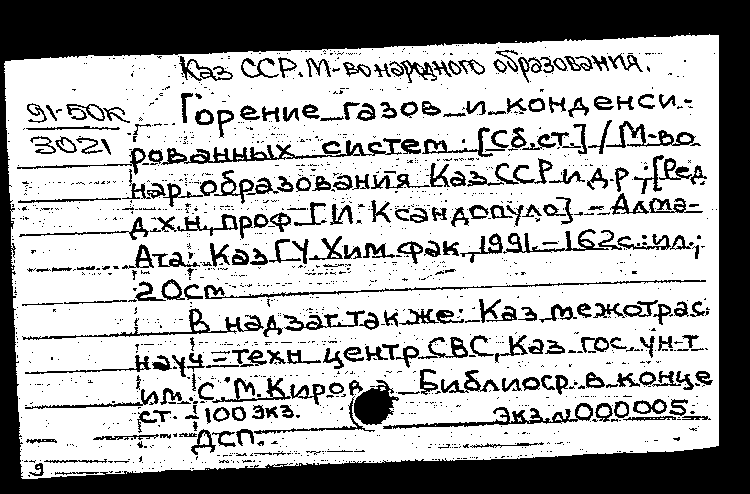 Каз ССР. М-во народного образования.
91-50к Горение газов и конденси-
3021 рованных систем: [Сб.ст.] / М-во
нар. образования Каз ССР и др.; [Ред.
д.х.н., проф. Г.И. Ксандопуло]. – Алма-
Ата: Каз ГУ. Хим. фак., 1991. – 162с.: ил.;
20 cm
В надзаг. также: Каз. межотрас.
науч-техн центр СВС, Каз. гос. ун-т
им. С.М. Кирова. Библиогр. в конце
ст. – 100 экз. Экз. №000005.
ДСП.
9